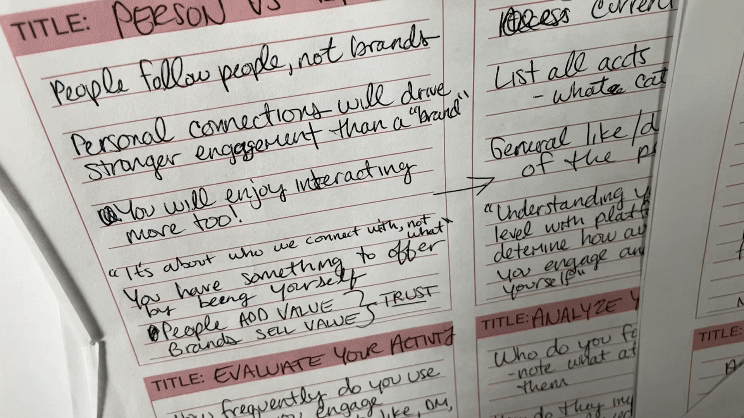 TITLE: PERSON VS
People follow people, not brands
Personal connections will drive
stronger engagement than a "brand"
You will enjoy interacting
more too!
"It's about who we connect with, not
what"
You have something to offer
by being yourself
People ADD VALUE
Brands SELL VALUE
TRUST
TITLE: EVALUATE YOUR ACTIVITY
How frequently do you use
engage
like, DM,
Access current
List all accts
- what cat
General like/d
of the p
"Understanding y
level with platf
determine how
you engage an
yourself"
TITLE: ANALYZE Y
Who do you fo
- note what at
them
do they
TITLE: